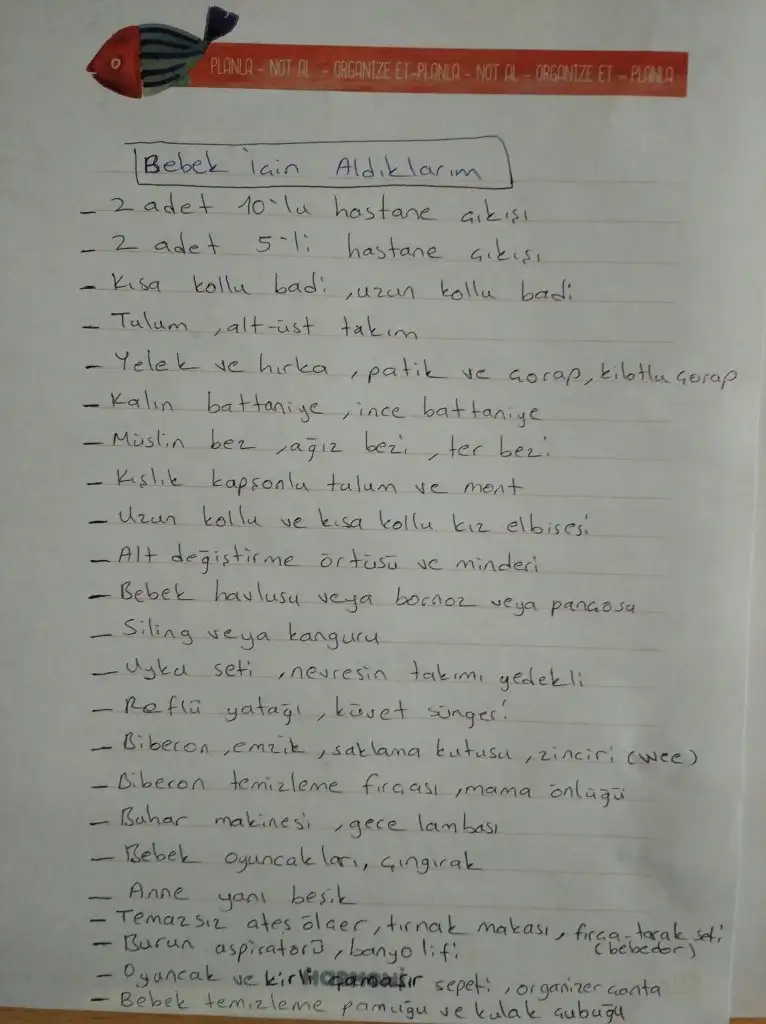 PLANLA - NOT AL - ORGANİZE ET-PLANLA - NOT AL - ORGANİZE ET - PLANLA
Bebek için Aldıklarım
- 2 adet 10'lu hastane çıkışı
- 2 adet 5'li hastane çıkışı
- Kısa kollu badi, uzun kollu badi
- Tulum, alt-üst takım
- Yelek ve hırka, patik ve çorap, kilotlu çorap
- Kalın battaniye, ince battaniye
- Müslin bez, ağız bezi, ter bezi
- Kışlık kapşonlu tulum ve mont
- Uzun kollu ve kısa kollu kız elbisesi
- Alt değiştirme örtüsü ve minderi
- Bebek havlusu veya bornoz veya pançosu
- Siling veya kanguru
- Uyku seti, nevresin takımı yedekli
- Reflü yatağı, küvet süngeri
- Biberon, emzik, saklama kutusu, zinciri (wee)
- Biberon temizleme fırçası, mama önlüğü
- Buhar makinesi, gece lambası
- Bebek oyuncakları, çıngırak
- Anne yanı beşik
- Temazsız ateş ölçer, tırnak makası, fırça-tarak seti
(bebedor)
- Burun aspiratörü, banyo lifi
- Oyuncak ve kirli çamaşır sepeti, organizer çanta
- Bebek temizleme pamuğu ve kulak çubuğu